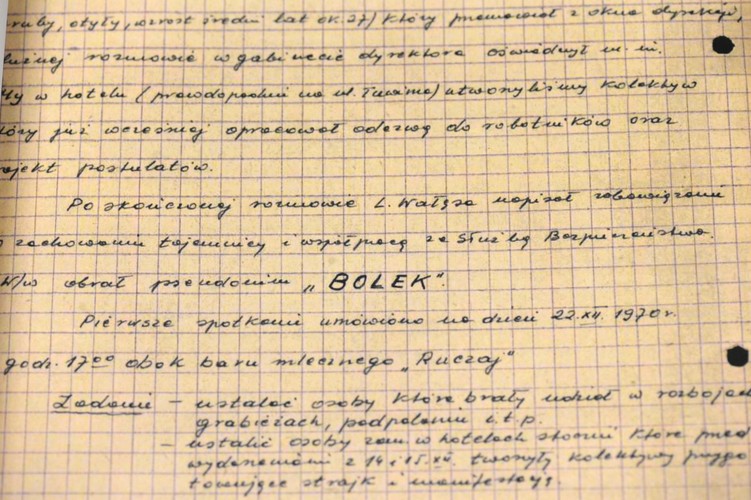 ruby, otyły, wzrost średni lat ok. 27) który przemawiał z okna dyrekcji,
luźnej rozmowie w gabinecie dyrektora oświadczył m. in.
w hotelu (prawdopodobnie na ul. Tuwima) utworzyliśmy kolektyw
tóry już wcześniej opracował odezwę do robotników oraz
ojekt postulatów.
Po skończonej rozmowie L. Wałęsa napisał zobowiązanie
o zachowaniu tajemnicy i współpracy ze Służbą Bezpieczeństwa.
W/w obrał pseudonim „BOLEK".
Pierwsze spotkanie umówiono na dzień 22.XII. 1970 r.
godz. 17⁰⁰ obok baru mlecznego „Ruczaj"
Zadanie - ustalać osoby które brały udział w rozbojach
grabieżach, podpaleniu i.t.p.
- ustalić osoby zam. w hotelach stoczni które przed
wydarzeniami z 14 i 15.XII. tworzyły kolektywy przygo
towujące strajk i manifestację.